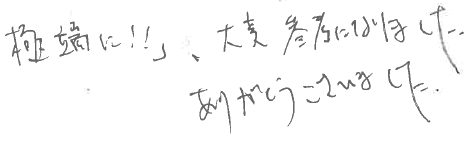 極端に!!」、大変参考になりました。
ありがとうございました。